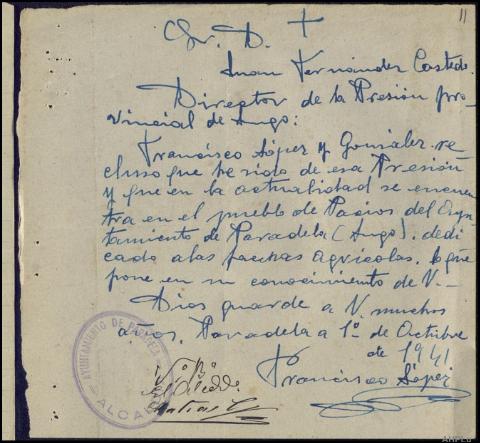 11
+
Sr. D.
Juan Fernández Castedo
Director de la Presión pro
vincial de Lugo:
Francisco López y González re-
cluso que he sido de esa Presión
y que en la actualidad se encuen
tra en el pueblo de Pacios del Ayu
tamiento de Paradela (Lugo), dedi
cado a las faenas agricolas. Lo que
pone en su conocimiento de V.-
Dios guarde a V. muchos
años. Paradela a 1º de Octubre
de 1941
Francisco López
Vº Bº
El Alcalde
AYUNTAMIENTO DE PARADELA
ALCALDIA
AHPLU